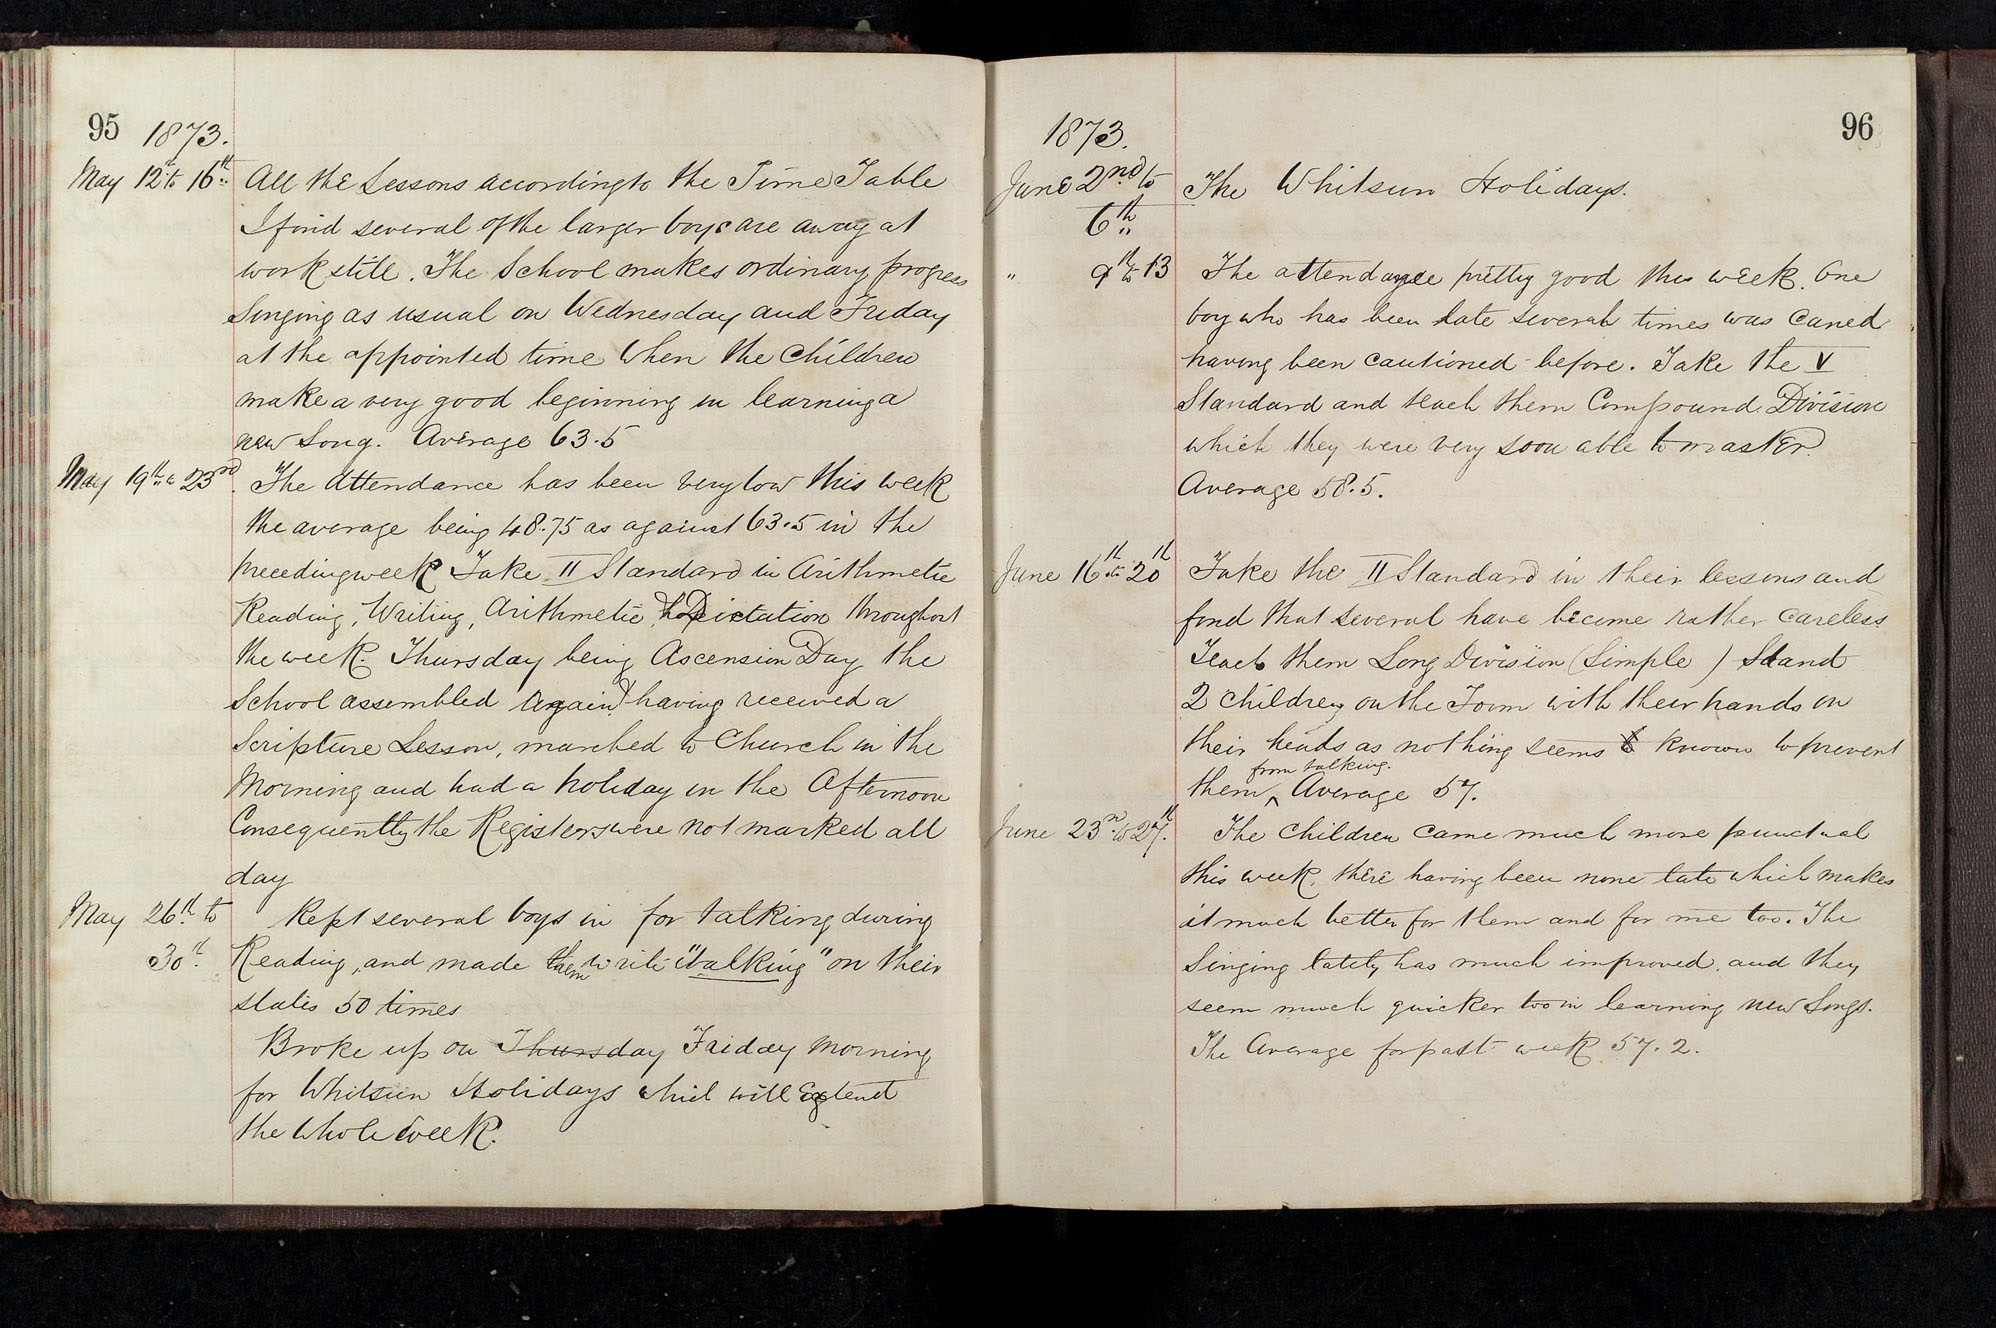 95 1873.
May 12th to 16th All the Lessons according to the Time Table
I find several of the larger boys are away at
work still. The School makes ordinary progress
Singing as usual on Wednesday and Friday
at the appointed time when the children
make a very good beginning in learning a
new Song. Average 63.5
May 19th to 23rd. The Attendance has been very low this week
the average being 48.75 as against 63.5 in the
preceding week Take II Standard in Arithmetic
Reading, Writing, Arithmetic, Dictation throughout
the week. Thursday being Ascension Day the
School assembled again & having received a
Scripture Lesson, marched to Church in the
Morning and had a holiday in the Afternoon
Consequently the Registers were not marked all
day
May 26th to Kept several boys in for talking during
30th. Reading, and made them write "talking" on their
slates 50 times
Broke up on Thursday Friday Morning
for Whitsun Holidays which will Extend
the whole week.
96
1873.
June 2nd to The Whitsun Holidays.
6th
" 9th to 13 The attendance pretty good this week. One
boy who has been late several times was caned
having been cautioned before. Take the V
Standard and teach them Compound Division
which they were very soon able to master.
Average 58.5.
June 16th to 20th Take the II Standard in their lessons and
find that several have become rather careless
Teach them Long Division (Simple) Stand
2 children on the Form with their hands on
their heads as nothing seems to known to prevent
from talking.
them ^ Average 57.
June 23rd to 27th. The children came much more punctual
this week, there having been none late which makes
it much better for them and for me too. The
Singing lately has much improved, and they
seem much quicker too in learning new Songs.
The Average for past week 57.2.